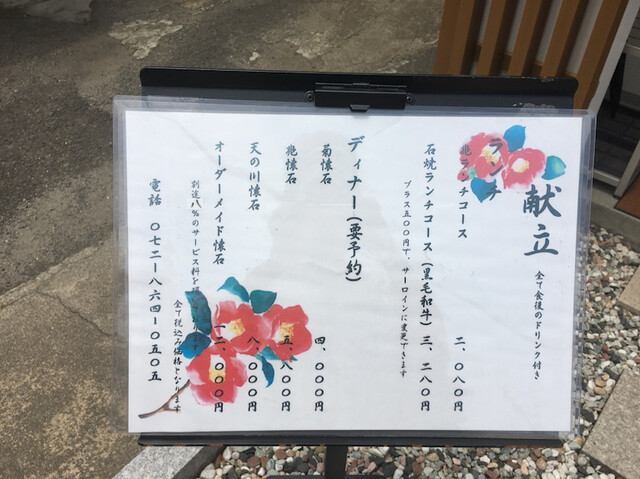 献立
全て食後のドリンク付き
ランチ
兆ランチコース 二、〇八〇円
石焼ランチコース(黒毛和牛) 三、二八〇円
プラス五〇〇円で、サーロインに変更できます
ディナー(要予約)
菊懐石 四、〇〇〇円
兆懐石 五、八〇〇円
天の川懐石 八、〇〇〇円
オーダーメイド懐石 一二、〇〇〇円
別途八%のサービス料を
全て税込み価格となります
電話 〇七二ー八六四ー〇五〇五